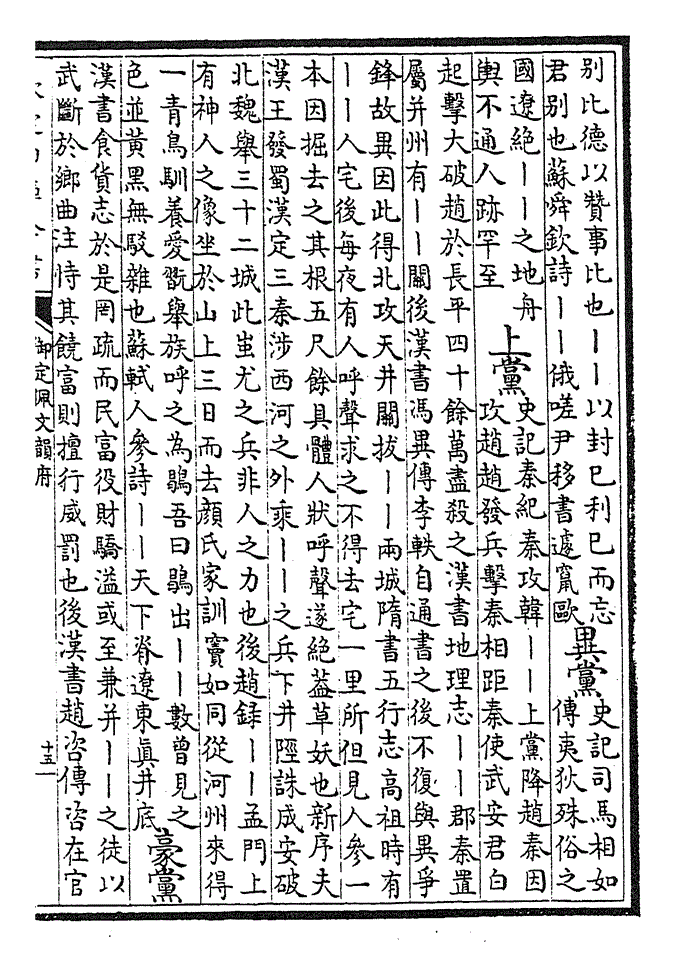 别比德以贊事比也丨丨以封已利已而忘
君别也蘇舜欽詩丨丨俄嗟尹移書遽竄歐
異黨
史記司馬相如
傳夷狄殊俗之
國遼絶丨丨之地舟
輿不通人跡罕至
上黨
史記秦紀秦攻韓丨丨上黨降趙秦因
攻趙趙發兵擊秦相距秦使武安君白
起擊大破趙於長平四十餘萬盡殺之漢書地理志丨丨郡秦置
屬并州有丨丨關後漢書馮異傳李軼自通書之後不復與異爭
鋒故異因此得北攻天井關拔丨丨兩城隋書五行志高祖時有
丨丨人宅後每夜有人呼聲求之不得去宅一里所但見人參一
本因掘去之其根五尺餘具體人狀呼聲遂絶葢草妖也新序夫
漢王發蜀漢定三秦涉西河之外乘丨丨之兵下井陘誅成安破
北魏舉三十二城此蚩尤之兵非人之力也後趙録丨丨孟門上
有神人之像坐於山上三日而去顔氏家訓竇如同從河州來得
一青鳥馴養愛翫舉族呼之為鶡吾曰鶡出丨丨數曾見之
色並黄黑無駁雜也蘇軾人參詩丨丨天下脊遼東眞井底
豪黨
漢書食貨志於是罔疏而民富役財驕溢或至兼并丨丨之徒以
武斷於鄉曲注恃其饒富則擅行威罰也後漢書趙咨傳咨在官
御定佩文韻府
十五